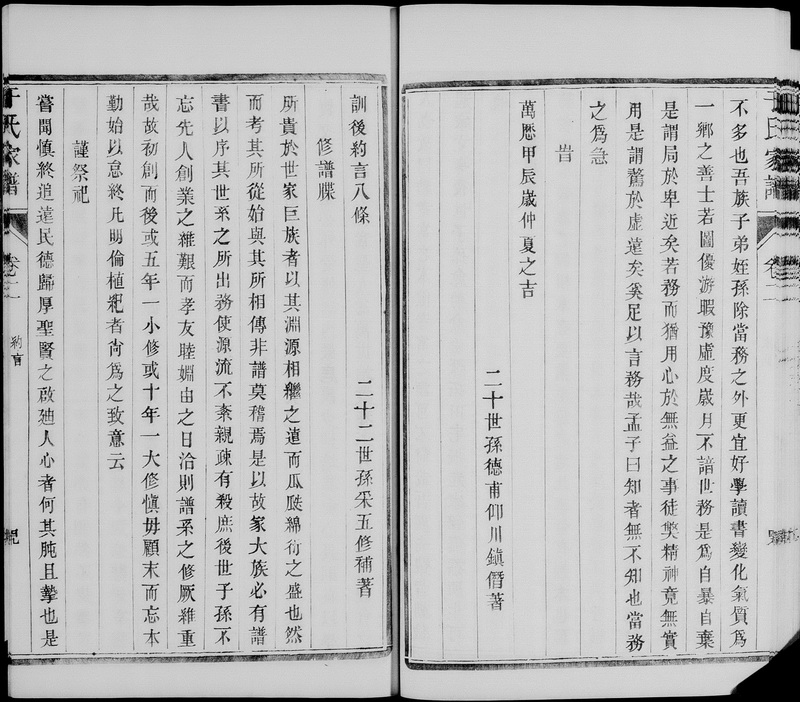 不多也吾族子弟姪孫除當務之外更宜好學讀書變化氣質爲
一鄉之善士若圖優游暇豫虛度歲月不諳世務是爲自暴自棄
是謂局於卑近矣若務而猶用心於無益之事徒獘精神竟無實
用是謂騖於虛遠矣奚足以言務哉孟子曰知者無不知也當務
之爲急
旹
萬歷甲辰歲仲夏之吉
二十世孫德甫仰川鎮僭著
于氏家譜
卷二
訓後約言八條
二十二世孫采五修補著
修譜牒
所貴於世家巨族者以其淵源相繼之遠而瓜瓞綿衍之盛也然
而考其所從始與其所相傳非譜莫稽焉是以故家大族必有譜
書以序其世系之所出務使源流不紊親疎有殺庶後世子孫不
忘先人創業之維艱而孝友睦婣由之日洽則譜系之修厥維重
哉故初創而後或五年一小修或十年一大修慎毋顧末而忘本
勤始以怠終凡明倫植紀者尚爲之致意云
謹祭祀
嘗聞慎終追遠民德歸厚聖賢之啟迪人心者何其肫且摯也是
于氏家譜
卷二
約言